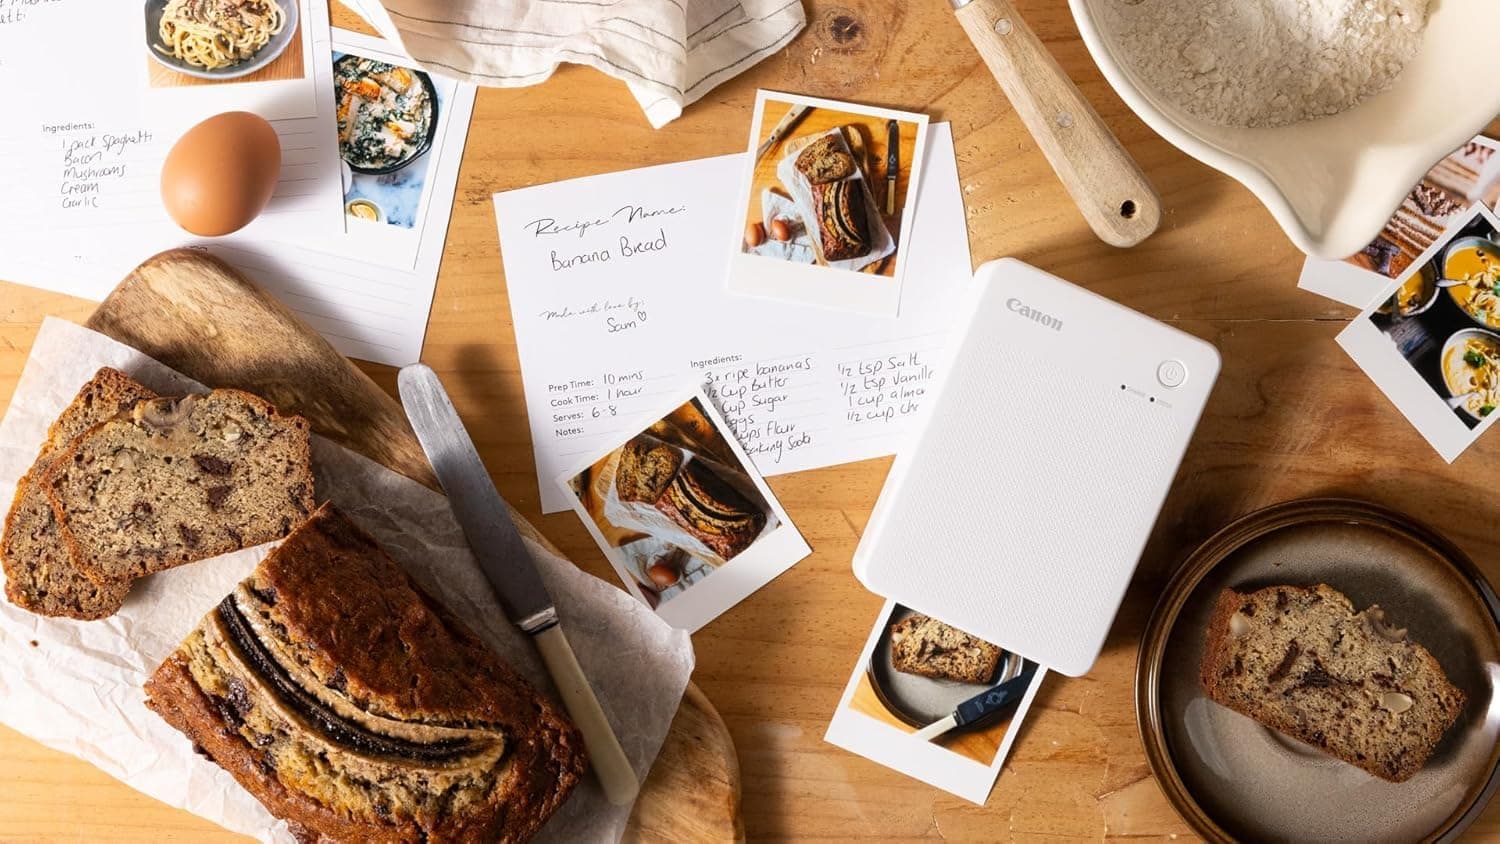 etti
Ingredients:
1 pack Spaghetti
Bacon
Mushrooms
Cream
Garlic
Recipe Name:
Banana Bread
Made with love by:
Sam
Prep Time: 10 mins
Cook Time: 1 hour
Serves: 6-8
Notes:
Ingredients:
3x ripe bananas
1/2 Cup Butter
Cup Sugar
Eggs
ups Flour
Baking Soda
1/2 tsp Salt
1/2 tsp Vanill
1 cup almo
1/2 cup cho
Canon